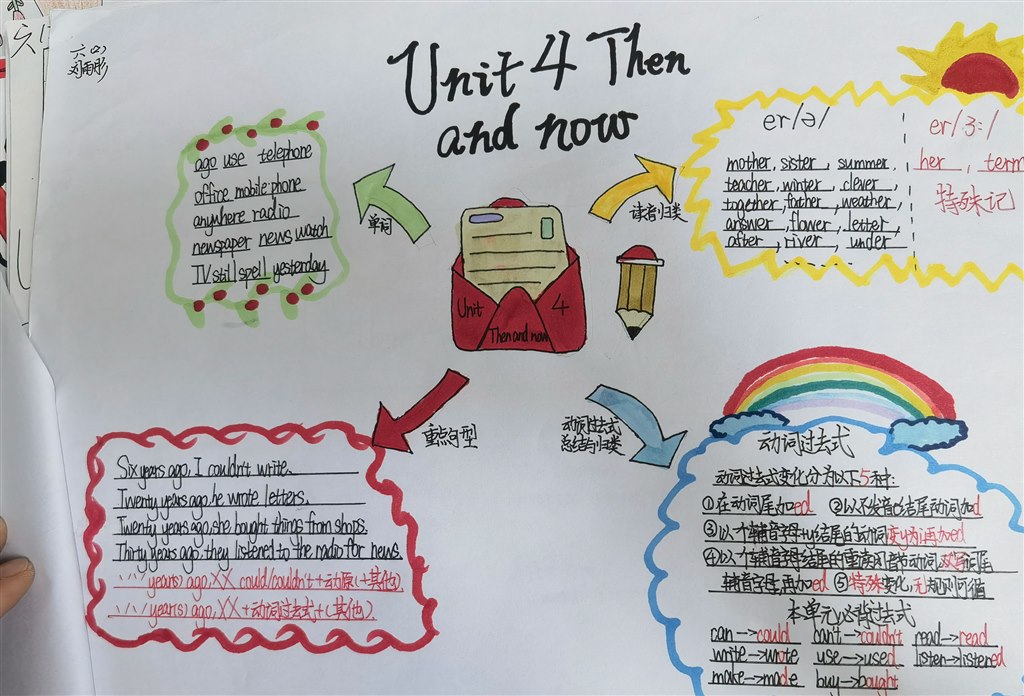 六(2)
刘雨彤
Unit 4 Then
and now
ago use telephone
office mobile phone
anywhere radio
newspaper news watch
TV still spell yesterday
单词
读音归类
er/ə/
mother, sister, summer,
teacher, winter, clever,
together, father, weather,
answer, flower, letter,
after, river, under
er/ɜː/
her, term
特殊记
Unit 4
Then and now
重点句型
Six years ago, I couldn't write.
Twenty years ago, he wrote letters.
Twenty years ago, she bought things from shops.
Thirty years ago, they listened to the radio for news.
year(s) ago, XX could/couldn't+动原(+其他)
year(s) ago, XX+动词过去式+(其他).
动词过去式
总结与归类
动词过去式
动词过去式变化分为以下5种:
①在动词尾加ed ②以不发音e结尾动词加d
③以个辅音字母+y结尾的动词变y为i再加ed
④以个辅音字母结尾的重读闭音节动词,双写词尾
辅音字母,再加ed ⑤特殊变化,无规则可循
本单元必背过去式
can→could can't→couldn't read→read
write→wrote use→used listen→listened
make→made buy→bought